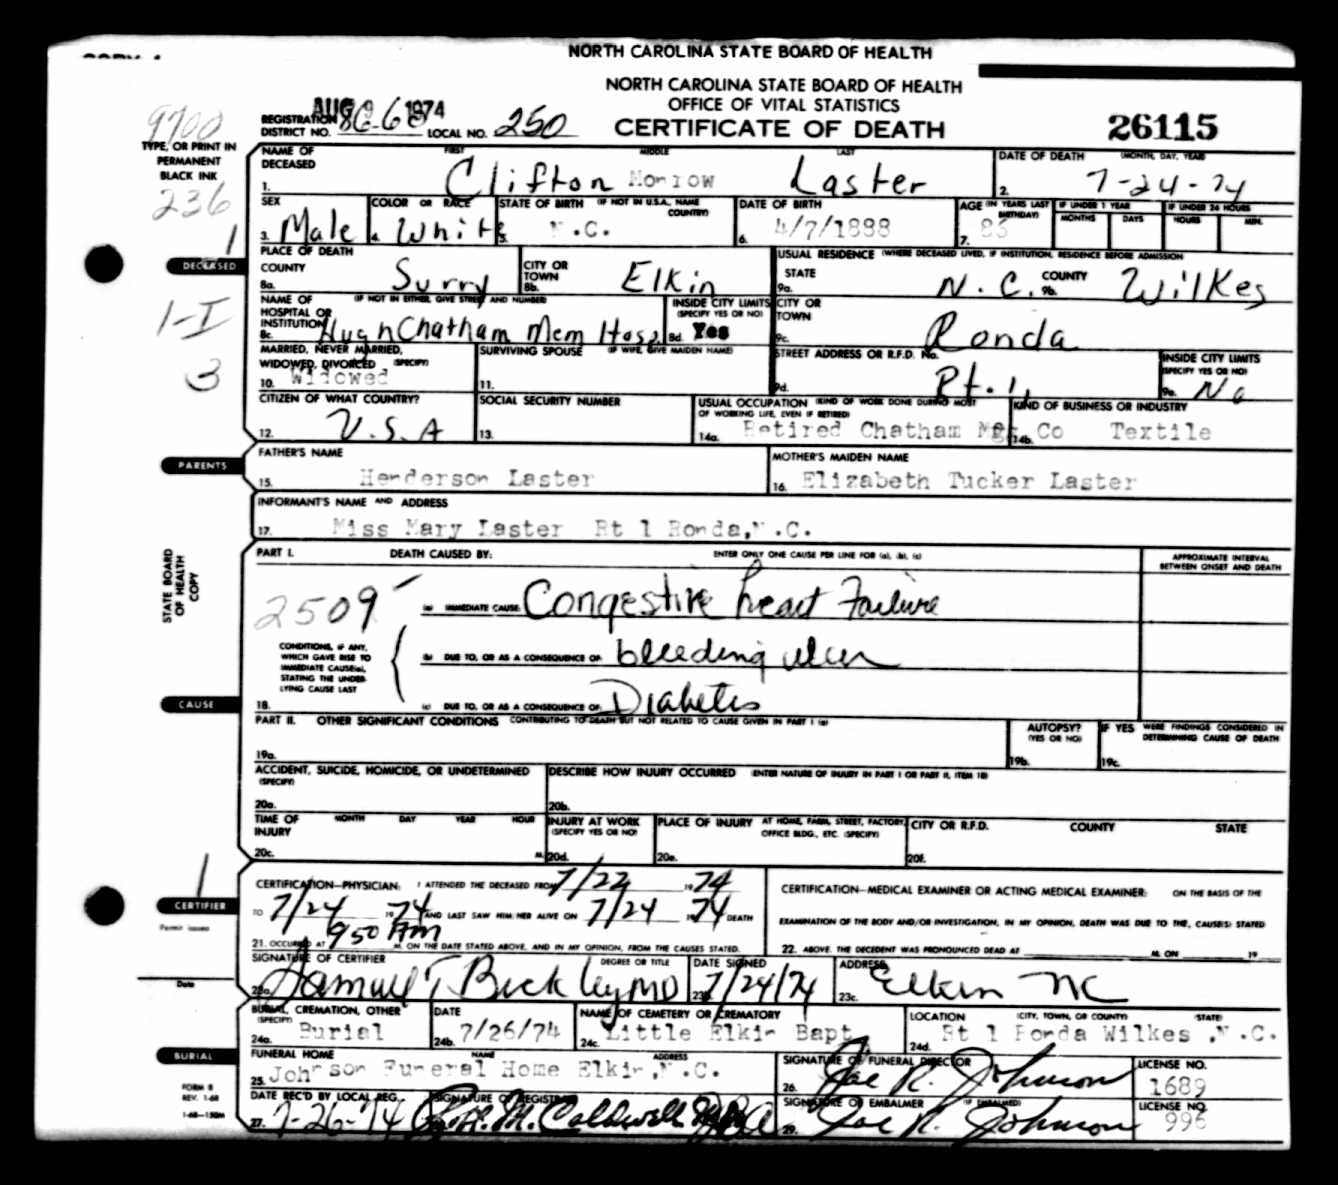 NORTH CAROLINA STATE BOARD OF HEALTH
NORTH CAROLINA STATE BOARD OF HEALTH
OFFICE OF VITAL STATISTICS
CERTIFICATE OF DEATH
26115
AUG 6 1974
REGISTRATION DISTRICT NO. 86-68 LOCAL NO. 250
9700
TYPE, OR PRINT IN
PERMANENT
BLACK INK
236
1
DECEASED
1-I
3
NAME OF DECEASED FIRST MIDDLE LAST
1. Clifton Monrow Laster
DATE OF DEATH (MONTH, DAY, YEAR)
2. 7-24-74
SEX
3. Male
COLOR OR RACE
4. White
STATE OF BIRTH (IF NOT IN U.S.A., NAME COUNTRY)
5. N.C.
DATE OF BIRTH
6. 4/7/1888
AGE (IN YEARS LAST BIRTHDAY)
7. 86
IF UNDER 1 YEAR
MONTHS DAYS
IF UNDER 24 HOURS
HOURS MIN.
PLACE OF DEATH
COUNTY
8a. Surry
CITY OR TOWN
8b. Elkin
USUAL RESIDENCE (WHERE DECEASED LIVED, IF INSTITUTION, RESIDENCE BEFORE ADMISSION)
STATE
9a. N. C.
COUNTY
9b. Wilkes
NAME OF HOSPITAL OR INSTITUTION (IF NOT IN EITHER, GIVE STREET AND NUMBER)
8c. Hugh Chatham Mem Hosp
INSIDE CITY LIMITS (SPECIFY YES OR NO)
8d. Yes
CITY OR TOWN
9c. Ronda
MARRIED, NEVER MARRIED, WIDOWED, DIVORCED (SPECIFY)
10. Widowed
SURVIVING SPOUSE (IF WIFE, GIVE MAIDEN NAME)
11.
STREET ADDRESS OR R.F.D. No.
9d. Rt. 1,
INSIDE CITY LIMITS (SPECIFY YES OR NO)
9e. No
CITIZEN OF WHAT COUNTRY?
12. U.S.A
SOCIAL SECURITY NUMBER
13.
USUAL OCCUPATION (KIND OF WORK DONE DURING MOST OF WORKING LIFE, EVEN IF RETIRED)
14a. Retired Chatham Mfg. Co
KIND OF BUSINESS OR INDUSTRY
14b. Textile
PARENTS
FATHER'S NAME
15. Henderson Laster
MOTHER'S MAIDEN NAME
16. Elizabeth Tucker Laster
INFORMANT'S NAME AND ADDRESS
17. Miss Mary Laster Rt 1 Ronda, N.C.
STATE BOARD OF HEALTH COPY
PART I. DEATH CAUSED BY: ENTER ONLY ONE CAUSE PER LINE FOR (a), (b), (c)
APPROXIMATE INTERVAL BETWEEN ONSET AND DEATH
2509
(a) IMMEDIATE CAUSE Congestive heart Failure
CONDITIONS, IF ANY, WHICH GAVE RISE TO IMMEDIATE CAUSE(a), STATING THE UNDERLYING CAUSE LAST
(b) DUE TO, OR AS A CONSEQUENCE OF: bleeding ulcer
CAUSE
18. (c) DUE TO, OR AS A CONSEQUENCE OF: Diabetes
PART II. OTHER SIGNIFICANT CONDITIONS CONTRIBUTING TO DEATH BUT NOT RELATED TO CAUSE GIVEN IN PART I (a)
19a.
AUTOPSY? (YES OR NO)
19b.
IF YES WERE FINDINGS CONSIDERED IN DETERMINING CAUSE OF DEATH
19c.
ACCIDENT, SUICIDE, HOMICIDE, OR UNDETERMINED (SPECIFY)
20a.
DESCRIBE HOW INJURY OCCURRED (ENTER NATURE OF INJURY IN PART I OR PART II, ITEM 18)
20b.
TIME OF INJURY MONTH DAY YEAR HOUR
20c. M.
INJURY AT WORK (SPECIFY YES OR NO)
20d.
PLACE OF INJURY AT HOME, FARM, STREET, FACTORY, OFFICE BLDG., ETC. (SPECIFY)
20e.
CITY OR R.F.D. COUNTY STATE
20f.
1
CERTIFIER
Permit issued
Date
CERTIFICATION—PHYSICIAN: I ATTENDED THE DECEASED FROM 7/22 19 74
TO 7/24 19 74 AND LAST SAW HIM/HER ALIVE ON 7/24 19 74 DEATH
21. OCCURRED AT 9:50 AM M. ON THE DATE STATED ABOVE, AND IN MY OPINION, FROM THE CAUSES STATED.
CERTIFICATION—MEDICAL EXAMINER OR ACTING MEDICAL EXAMINER: ON THE BASIS OF THE
EXAMINATION OF THE BODY AND/OR INVESTIGATION, IN MY OPINION, DEATH WAS DUE TO THE, CAUSE(S) STATED
22. ABOVE. THE DECEDENT WAS PRONOUNCED DEAD AT M. ON 19
SIGNATURE OF CERTIFIER DEGREE OR TITLE
23a. Samuel T. Bickley MD
DATE SIGNED
23b. 7/24/74
ADDRESS
23c. Elkin NC
BURIAL, CREMATION, OTHER (SPECIFY)
24a. Burial
DATE
24b. 7/26/74
NAME OF CEMETERY OR CREMATORY
24c. Little Elkin Bapt
LOCATION (CITY, TOWN, OR COUNTY) (STATE)
24d. Rt 1 Ronda Wilkes , N.C.
BURIAL
FUNERAL HOME NAME ADDRESS
25. Johnson Funeral Home Elkin, N.C.
SIGNATURE OF FUNERAL DIRECTOR
26. Joe R. Johnson
LICENSE NO.
1689
FORM 8
REV. 1-68
DATE REC'D BY LOCAL REG.
27. 7-26-74
SIGNATURE OF REGISTRAR
M. Caldwell
SIGNATURE OF EMBALMER (IF EMBALMED)
29. Joe R. Johnson
LICENSE NO.
996